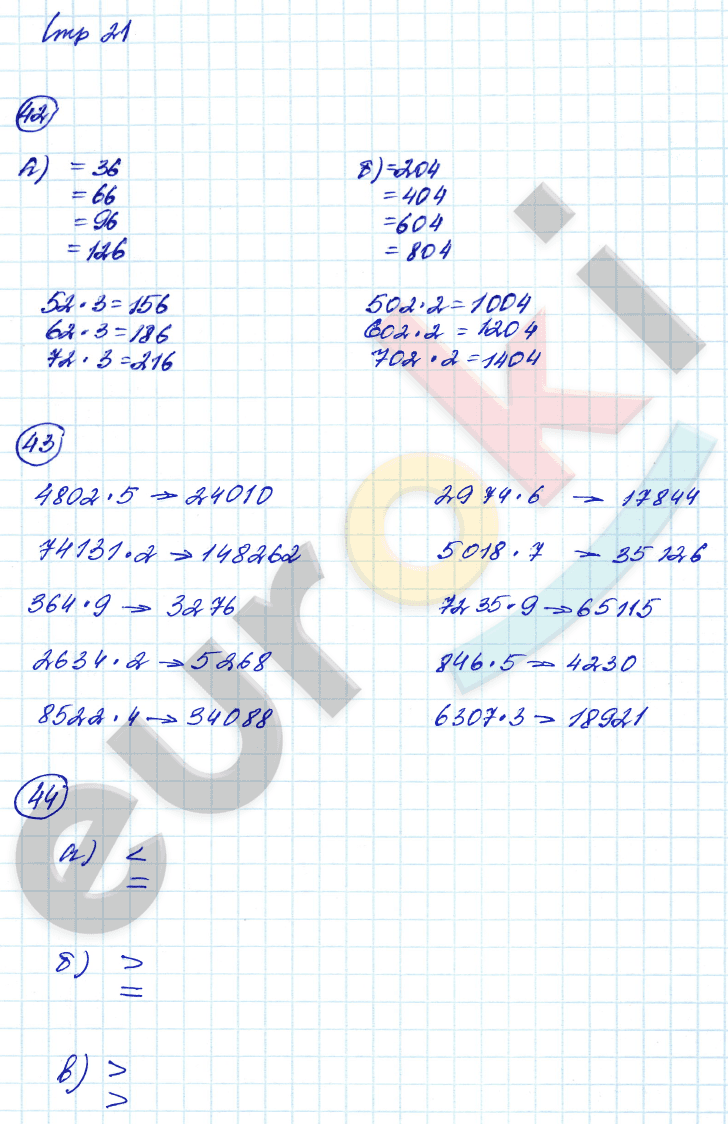 Стр 21
42
а) = 36
= 66
= 96
= 126
52 · 3 = 156
62 · 3 = 186
72 · 3 = 216
б) = 204
= 404
= 604
= 804
502 · 2 = 1004
602 · 2 = 1204
702 · 2 = 1404
43
4802 · 5 → 24010
74131 · 2 → 148262
364 · 9 → 3276
2634 · 2 → 5268
8522 · 4 → 34088
2974 · 6 → 17844
5018 · 7 → 35126
7235 · 9 → 65115
846 · 5 → 4230
6307 · 3 → 18921
44
а) <
=
б) >
=
в) >
>
euroki